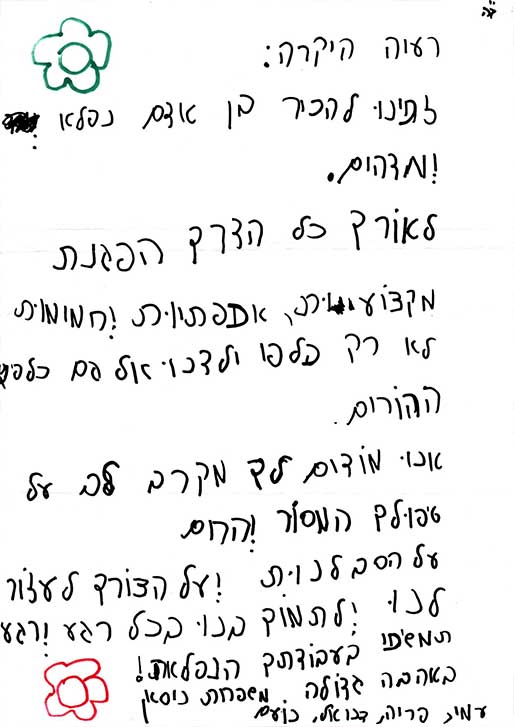 בס"ד
רעיה היקרה:
זכינו להכיר בן אדם נפלא
ומדהים.
לאורך כל הדרך הפגנת
מקצועיות, אמפתיות וחמימות
לא רק כלפי ילדנו אלא גם כלפינו
ההורים.
אנו מודים לך מקרב לב על
טיפולך המסור והחם
על הסבלנות ועל הצורך לעזור
לנו ולתמוך בנו בכל רגע ורגע
תמשיכי בעבודתך הנפלאת!
באהבה גדולה משפחת ניסאן
עמית, פריה, דניאל, נועם